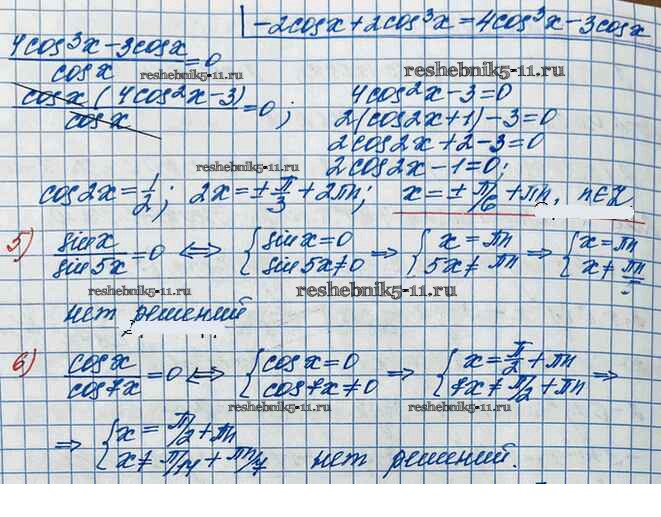 -2cosx+2cos³x=4cos³x-3cosx
(4cos³x-3cosx)/cosx=0
reshebnik5-11.ru reshebnik5-11.ru
cosx(4cos²x-3)/cosx=0; 4cos²x-3=0
2(cos2x+1)-3=0
2cos2x+2-3=0
reshebnik5-11.ru 2cos2x-1=0;
cos2x=1/2; 2x=±π/3+2πn; x=±π/6+πn, n∈Z.
5) sinx/sin5x=0 ⟺ {sinx=0 sin5x≠0 ⇒ {x=πn 5x≠πn ⇒ {x=πn x≠πn/5
reshebnik5-11.ru reshebnik5-11.ru
нет решений
6) cosx/cos7x=0 ⟺ {cosx=0 cos7x≠0 ⇒ {x=π/2+πn 7x≠π/2+πn ⇒
reshebnik5-11.ru reshebnik5-11.ru
⇒ {x=π/2+πn x≠π/14+πn/7 нет решений.